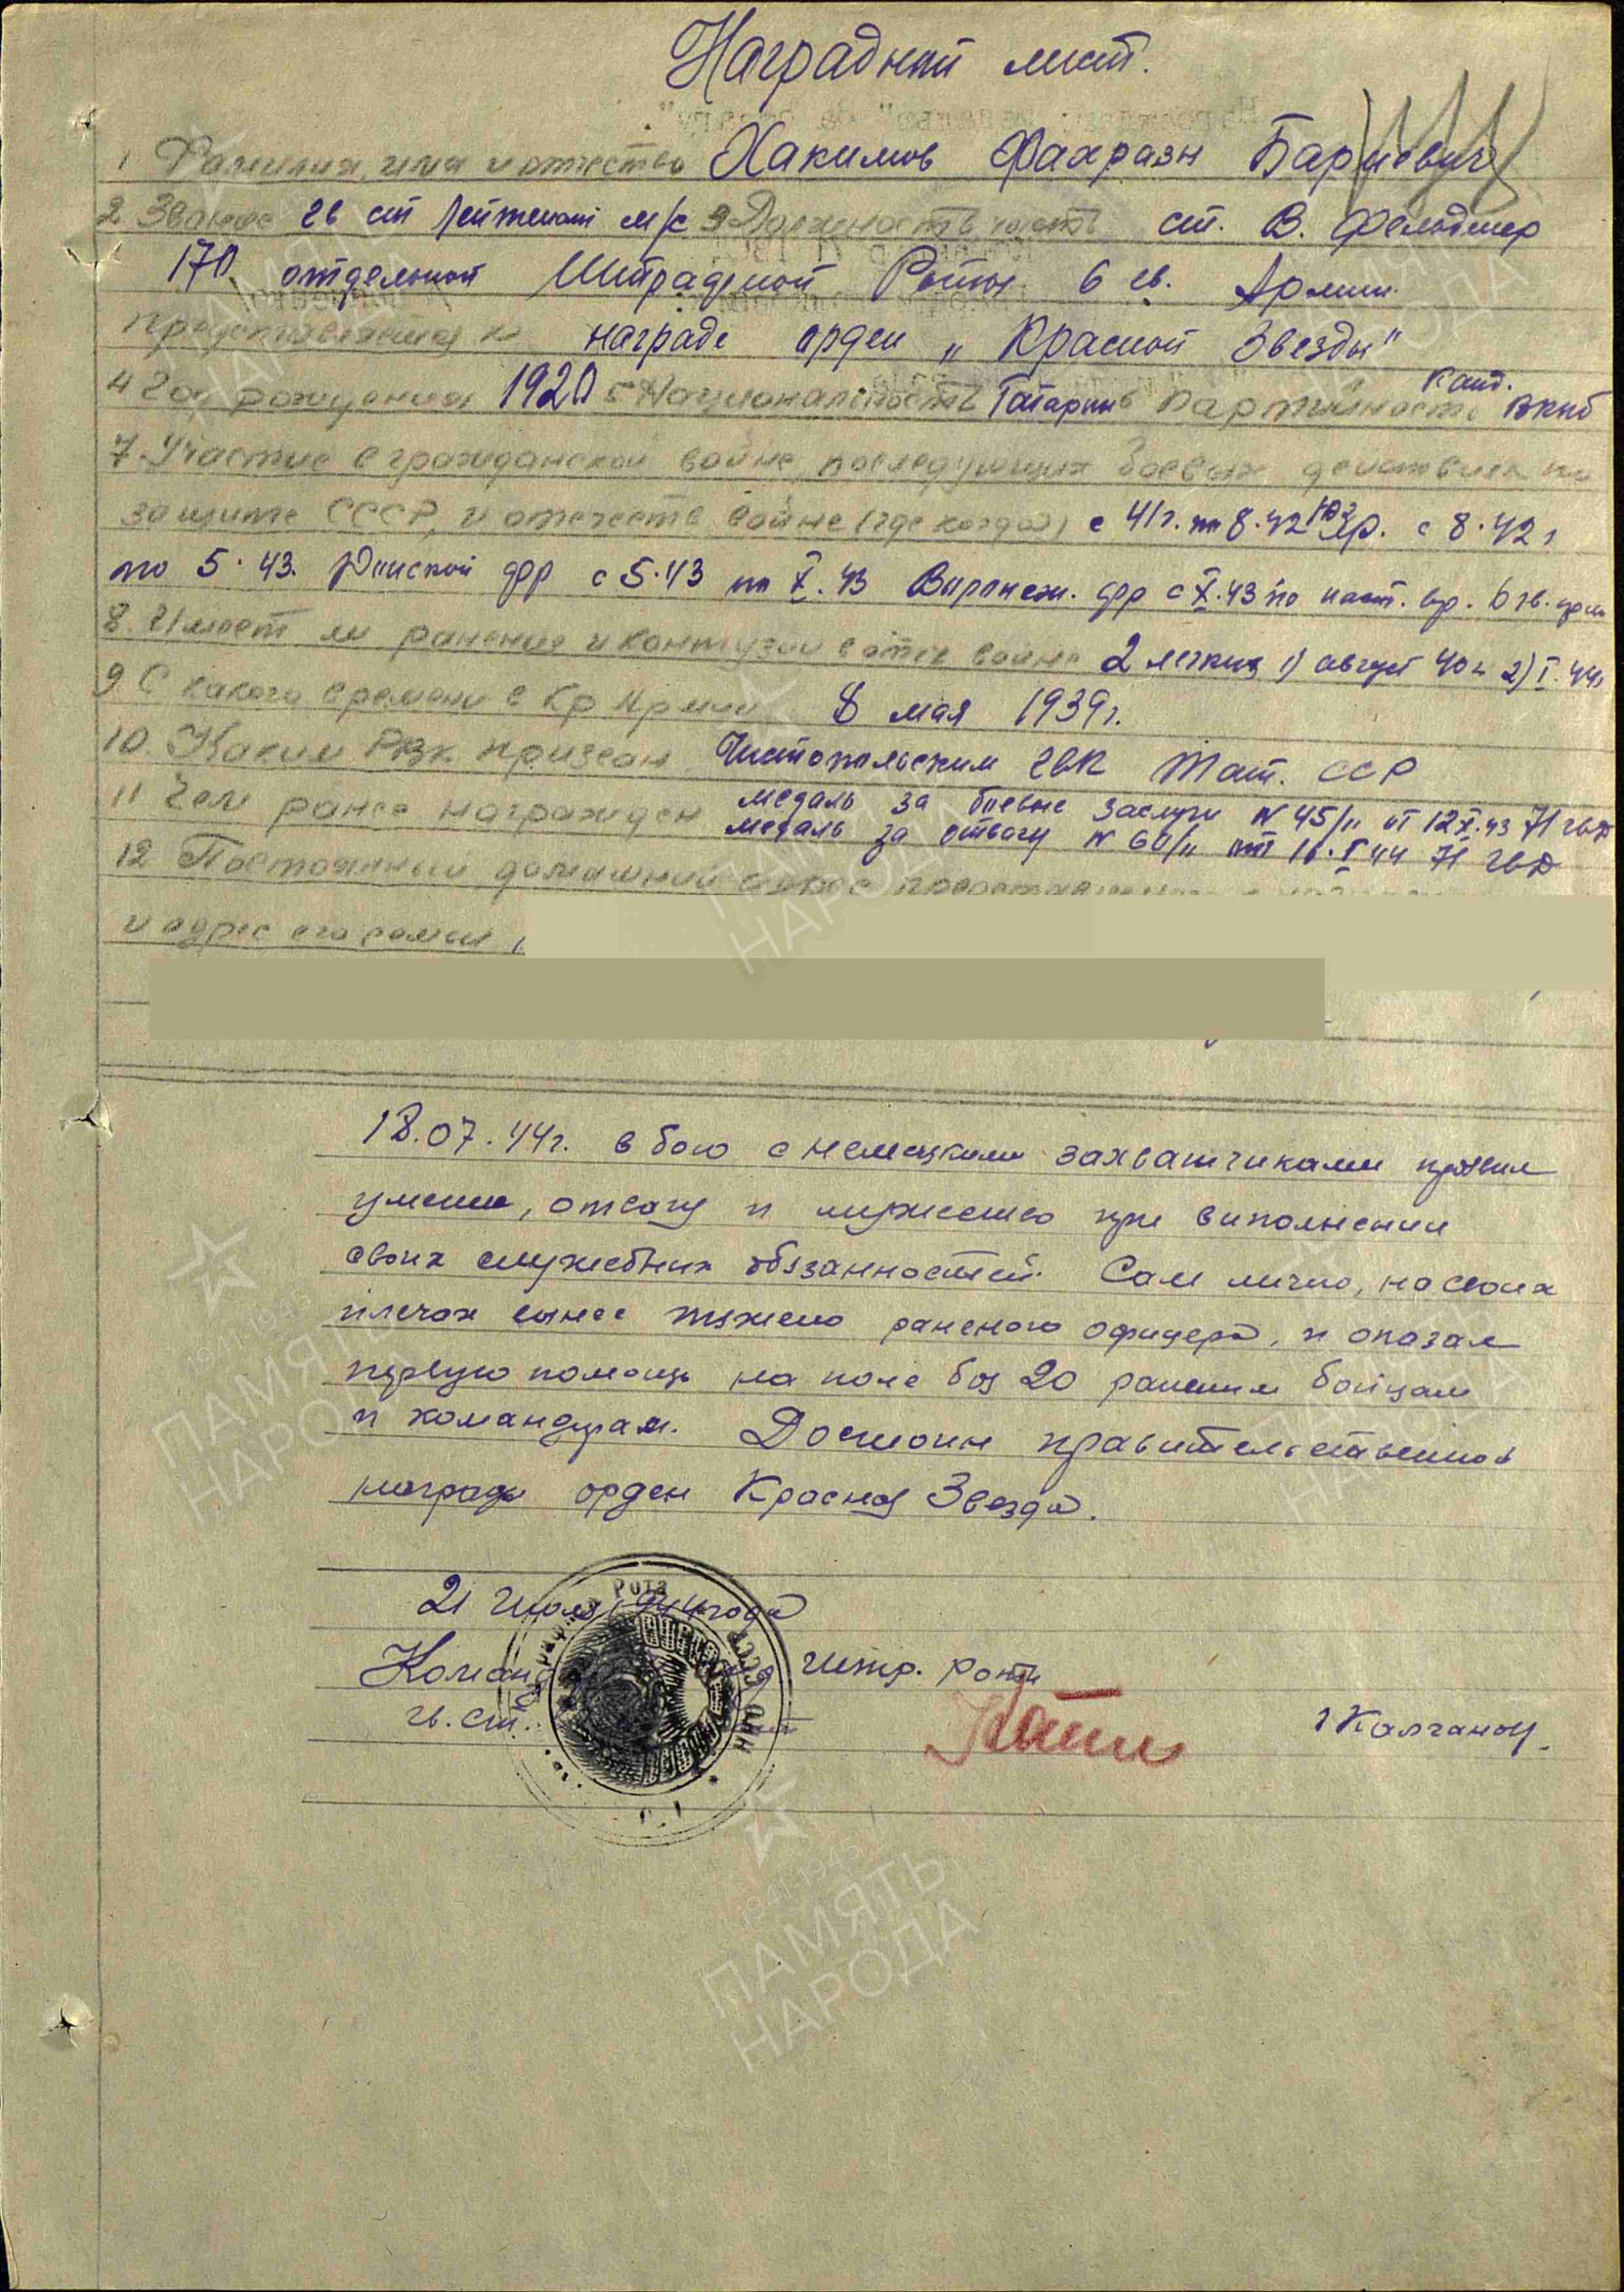 Наградной лист.
1 Фамилия, имя и отчество Хакимов Фахразн Бариевич
2 Звание гв ст Лейтенант м/с 3 Должность часть ст. В. Фельдшер
170 отдельной Штрафной Роты 6 гв. Армии.
представляется к награде орден „Красной Звезды"
4 Год рождения 1920 5 Национальность Татарин 6 Партийность Канд. ВКПб
7. Участие в гражданской войне, последующих боевых действиях по
защите СССР, и отечеств. войне (где когда) с 41г. по 8.42 ЮЗ фр. с 8.42 г
по 5.43. Донской фр с 5.43 по X.43 Воронеж. фр с X.43 по наст. вр. 6 гв.
8. Имеет ли ранение и контузии в отеч войне 2 легких 1) август 40г 2) I.44г
9 С какого времени в Кр Армии 8 мая 1939г.
10. Каким РВК призван Чистопольским ГВК Тат. ССР
11 Чем ранее награжден медаль за боевые заслуги N 45/н от 12 X.43 71 гвд
медаль за отвагу N 60/н от I 44 71 гвд
12 Постоянный домашний адрес
и адрес его семьи
18.07.44г. в бою с немецкими захватчиками проявил
умение, отвагу и мужество при виполнении
своих служебних обязанностей. Сам лично, на своих
плечах вынес тяжело раненого офицера, и оказал
первую помощь на поле боя 20 раненим бойцам
и командирам. Достоин правительственной
награды орден Красная Звезда.
21 Июля 1944 года
Коман штр. роти
гв. ст.
Калганов
РОТА
СССР
НКО
1941-1945
ПАМЯТЬ
НАРОДА